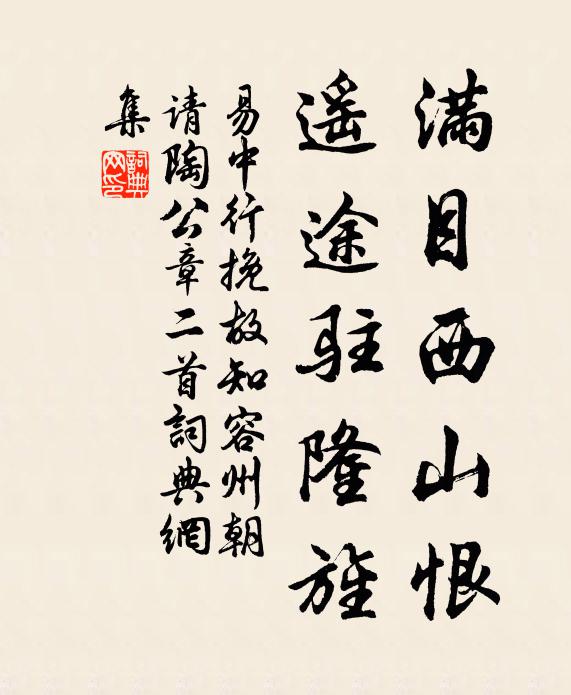 满目西山恨
遥途驻隆旌
易中行挽故知容州朝
请陶公章二首詞典網
集
詞典网印